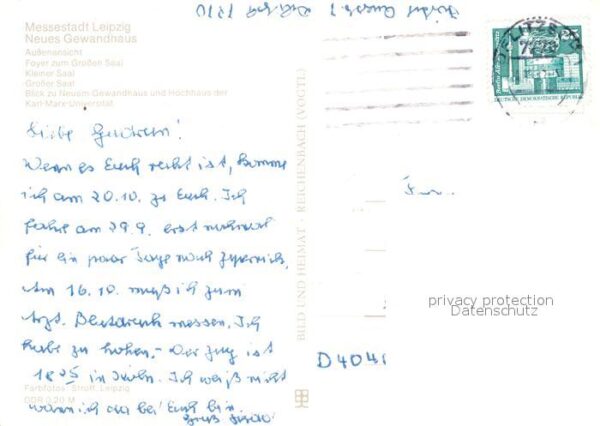 Messestadt Leipzig
Neues Gewandhaus
Außenansicht
Foyer zum Großen Saal
Kleiner Saal
Großer Saal
Blick zu Neuem Gewandhaus und Hochhaus der
Karl-Marx-Universität
Wenn es Euch recht ist, komme
ich am 20.10. zu Euch. Ich
fahre am 29.9. erst nochmal
für ein paar Tage nach
Am 16.10. muß ich zum
Arzt. Blutdruck messen. Ich
habe zu hohen.- Der Zug ist
18 25 in Ich weiß nicht
wann ich da bei Euch bin.
Gruß
Farbfotos: Straff, Leipzig
DDR 0,20 M
BILD UND HEIMAT · REICHENBACH (VOGTL.)
7270
DELITZSCH
25
DEUTSCHE DEMOKRATISCHE REPUBLIK
Frau
privacy protection
Datenschutz
D4041